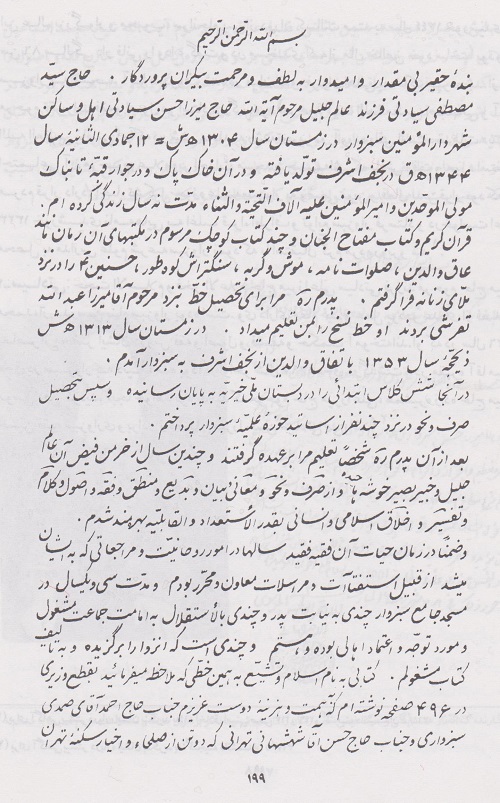 بسم الله الرحمن الرحیم
بندهٔ حقیر بی مقدار و امیدوار به لطف و مرحمت بیکران پروردگار . حاج سید
مصطفی سیادتی فرزند عالم جلیل مرحوم آیة الله حاج میرزا حسن سیادتی اهل و ساکن
شهر دارالمؤمنین سبزوار در زمستان سال ۱۳۰۴ ه ش = ۱۲ جمادی الثانیة سال
۱۳۴۴ ه ق در نجف اشرف تولد یافته و در آن خاک پاک و در جوار قبهٔ تابناک
مولی الموحدین و امیرالمؤمنین علیه آلاف التحیة والثناء مدت نه سال زندگی کرده ام .
قرآن کریم و کتاب مفتاح الجنان و چند کتاب کوچک مرسوم در مکتبهای آن زمان مانند
عاق والدین ، صلوات نامه ، موش و گربه ، سنگتراش کوه طور ، حسنین را در نزد
ملای زنانه فرا گرفتم . پدرم ره مرا برای تحصیل خط نزد مرحوم آقا میرزا عبدالله
تفرشی بردند او خط نسخ را بمن تعلیم میداد . در زمستان سال ۱۳۱۳ ه ش
ذیحجهٔ سال ۱۳۵۳ باتفاق والدین از نجف اشرف به سبزوار آمدم .
در آنجا شش کلاس ابتدائی را در دبستان ملی خیریه به پایان رسانیده و سپس بتحصیل
صرف و نحو در نزد چند نفر از اساتید حوزهٔ علمیهٔ سبزوار پرداختم .
بعد از آن پدرم ره شخصاً تعلیم مرا بر عهده گرفتند و چندین سال از خرمن فیض آن عالم
جلیل و خبیر بصیر خوشه ها و از صرف و نحو و معانی بیان و بدیع و منطق و فقه و اصول و کلام
و تفسیر و اخلاق اسلامی و انسانی بقدر الاستعداد و القابلیة بهره مند شدم .
و ضمناً در زمان حیات آن فقیه فقید سالها در امور روحانیت و مراجعاتی که به ایشان
میشد از قبیل استفتاآت و مرسلات معاون و محرر بودم و مدت سی و یکسال در
مسجد جامع سبزوار چندی به نیابت پدر و چندی بالاستقلال به امامت جماعت مشغول
و مورد توجه و اعتماد اهالی بوده و هستم و چندی است که انزوا را برگزیده و به تألیف
کتاب مشغولم . کتابی به نام اسلام و تشیع به همین خطی که ملاحظه میفرمائید بقطع وزیری
در ۴۹۶ صفحه نوشته ام که بهمت و هزینهٔ دوست عزیزم جناب حاج احمد آقای صمدی
سبزواری و جناب حاج حسن آقا شهشهانی تهرانی که دو تن از صلحاء و اخیار سکنهٔ تهران
۱۹۹